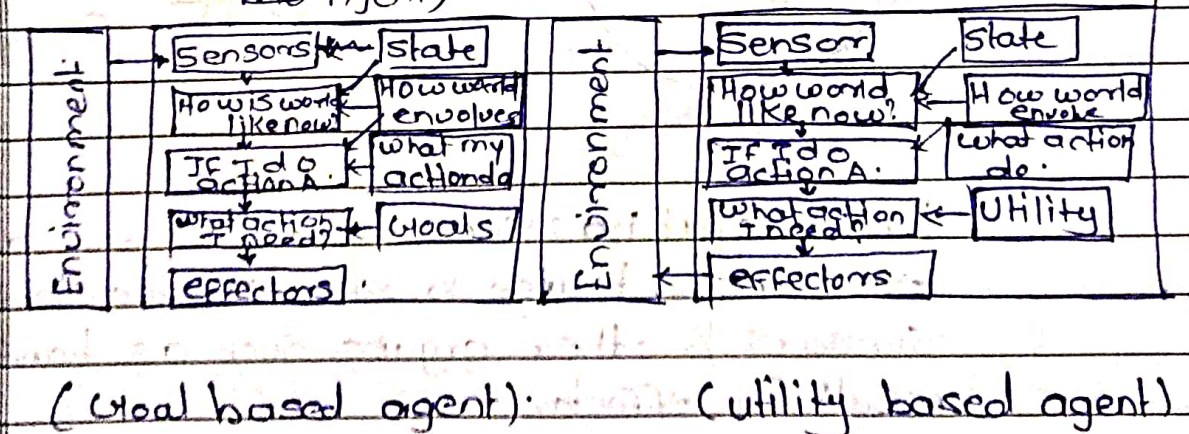 Environment.
Sensors
State
How is world
like now?
How world
envolves
If I do
action A.
what my
action do
what action
I need?
Goals
effectors
Environment
Sensor
State
How world
like now?
How world
envolve
If I do
action A.
what action
do.
What action
I need?
Utility
effectors
(Goal based agent).
(utility based agent)